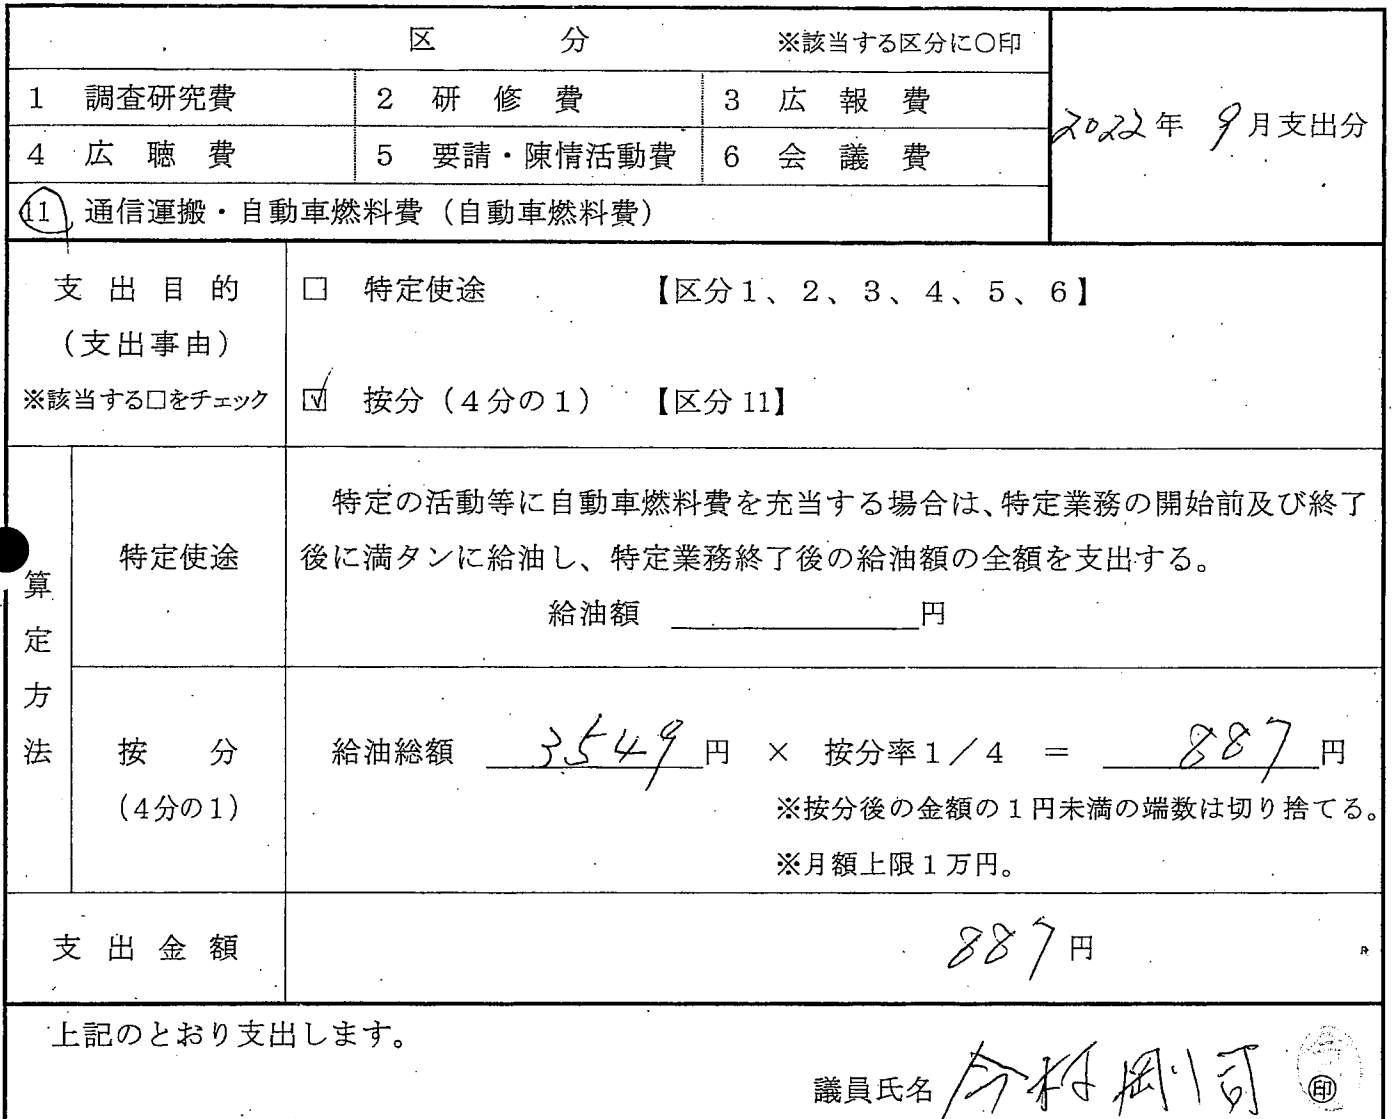 区　　　分　　　※該当する区分に○印
1　調査研究費　2　研　修　費　3　広　報　費
2022年　9月支出分
4　広　聴　費　5　要請・陳情活動費　6　会　議　費
11　通信運搬・自動車燃料費（自動車燃料費）
支　出　目　的　□　特定使途　【区分1、2、3、4、5、6】
（支出事由）
※該当する□をチェック　☑　按分（4分の1）　【区分11】
算定方法
特定使途
特定の活動等に自動車燃料費を充当する場合は、特定業務の開始前及び終了
後に満タンに給油し、特定業務終了後の給油額の全額を支出する。
給油額　＿＿＿＿円
按　　分
（4分の1）
給油総額　3549円　×　按分率1／4　＝　887円
※按分後の金額の1円未満の端数は切り捨てる。
※月額上限1万円。
支　出　金　額　887円
上記のとおり支出します。
議員氏名　今村剛司　㊞